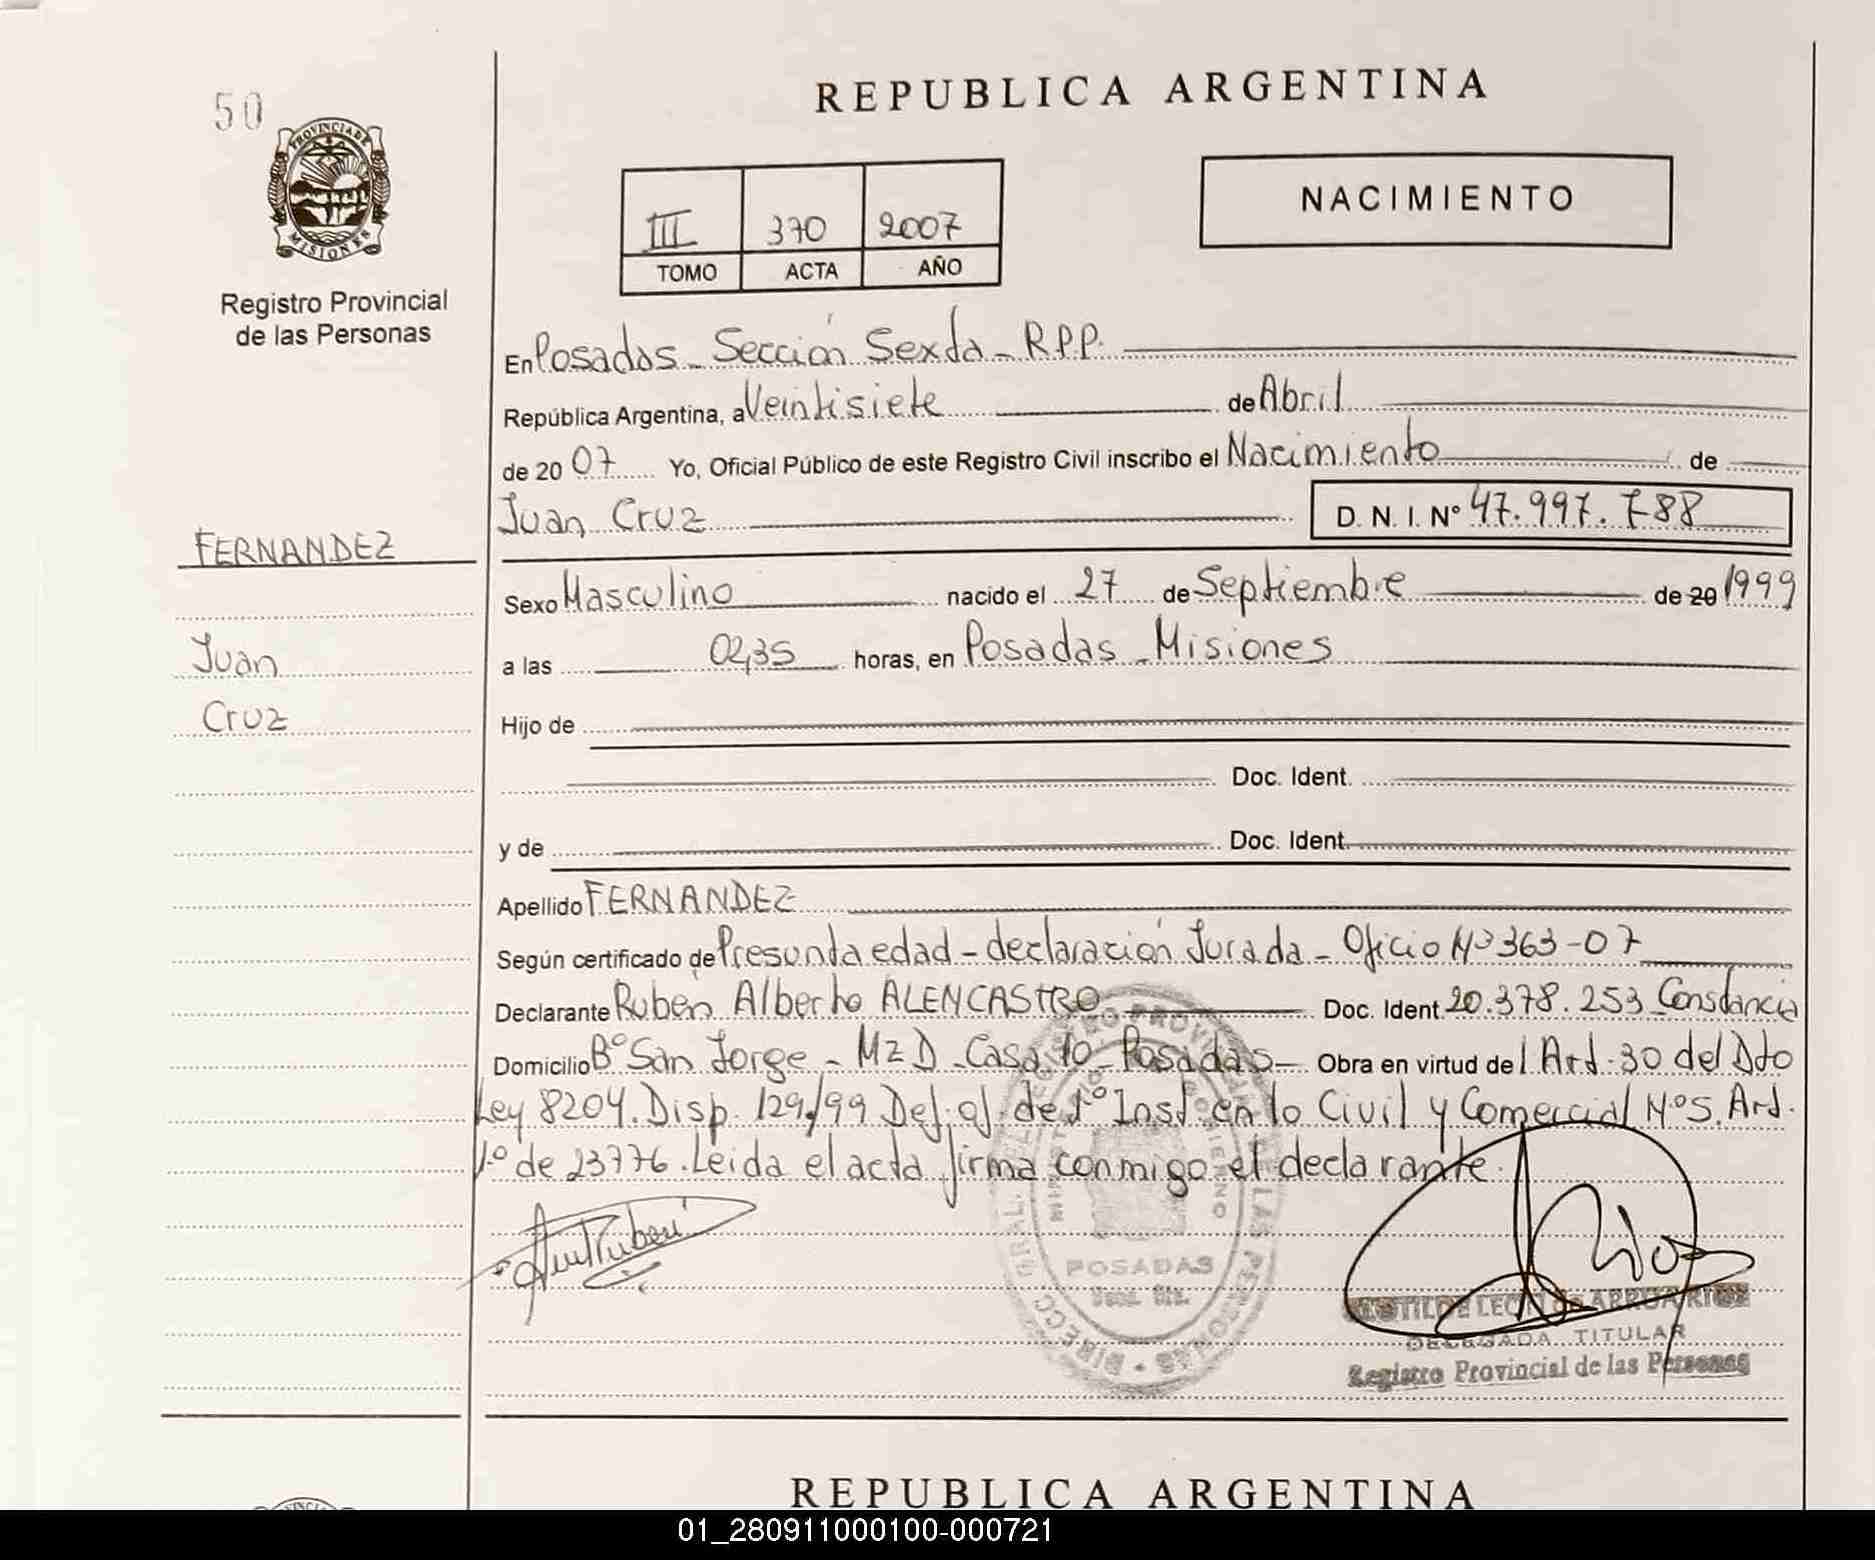 50
PROVINCIA DE
MISIONES
Registro Provincial
de las Personas
REPUBLICA ARGENTINA
III 370 2007
TOMO ACTA AÑO
NACIMIENTO
En Posadas - Sección Sexta - R.P.P.
República Argentina, a Veintisiete de Abril
de 20 07 Yo, Oficial Público de este Registro Civil inscribo el Nacimiento de
Juan Cruz D. N. I. Nº 47.997.788
FERNANDEZ
Juan
Cruz
Sexo Masculino nacido el 27 de Septiembre de 20 1999
a las 02,35 horas, en Posadas - Misiones
Hijo de
Doc. Ident.
y de Doc. Ident.
Apellido FERNANDEZ
Según certificado de Presunta edad - declaración Jurada - Oficio Nº 363-07
Declarante Rubén Alberto ALENCASTRO Doc. Ident 20.378.253 Constancia
Domicilio Bº San Jorge - Mz D - Casa 10 - Posadas - Obra en virtud del Art. 30 del Dto
Ley 8204. Disp. 129/99 Def. of. de 1º Inst. en lo Civil y Comercial Nº 5. Art.
1º de 23776. Leida el acta firma conmigo el declarante.
POSADAS
DELEGADA TITULAR
Registro Provincial de las Personas
REPUBLICA ARGENTINA
01_280911000100-000721